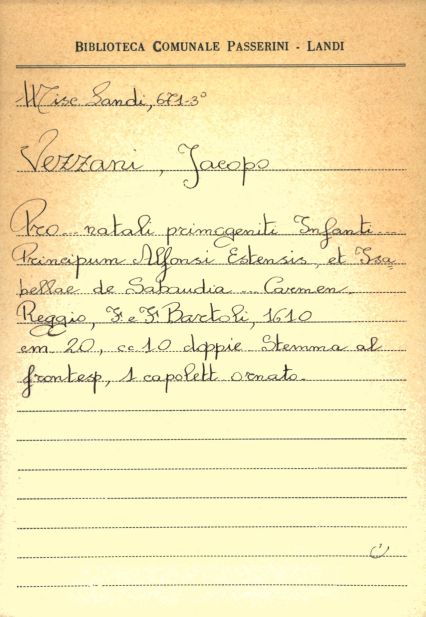 BIBLIOTECA COMUNALE PASSERINI - LANDI
Misc Landi, 671-3°
Vezzani, Jacopo
Pro... natali primogeniti Infanti...
Principum Alfonsi Estensis, et Isa=
bellae de Sabaudia ... Carmen
Reggio, F. e F. Bartoli, 1610
cm 20, cc 10 doppie Stemma al
frontesp, 1 capolett ornato.